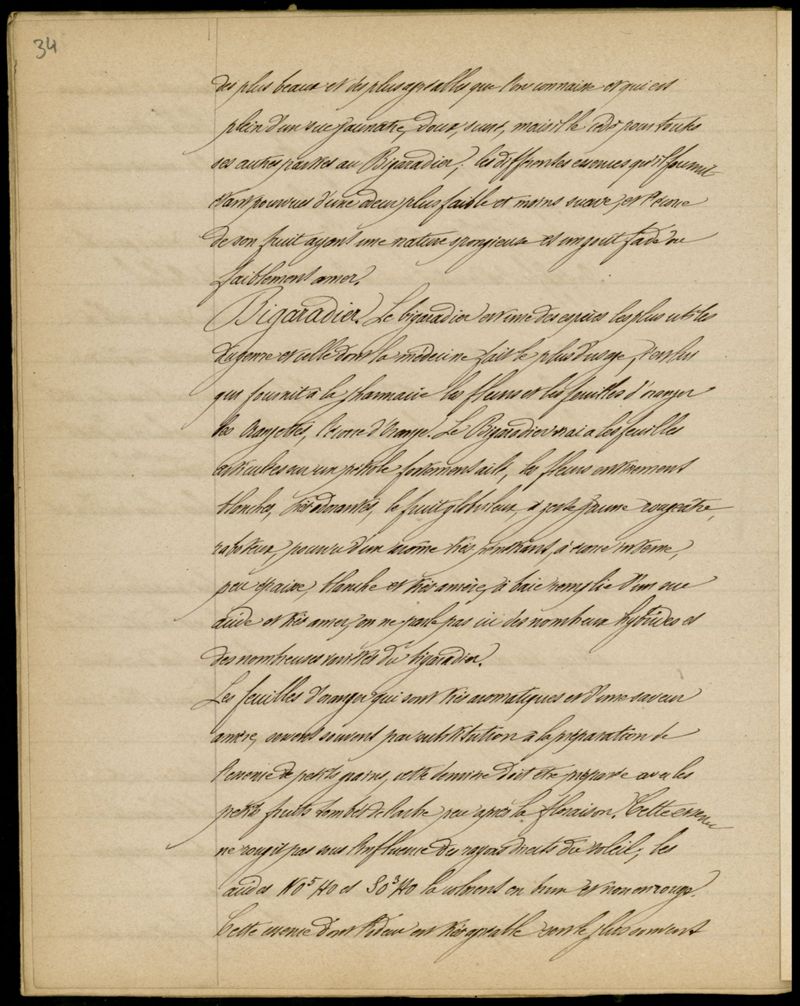 34
des plus beaux et des plus agréables que l'on connaisse et qui est
plein d'un suc jaunâtre, doux, sucré, mais il le cède pour toutes
ses autres parties au Bigaradier; les différentes essences qu'il fournit
étant pourvues d'une odeur plus faible et moins suave, et l'écorce
de son fruit ayant une nature spongieuse et un goût fade ou
faiblement amer.
Bigaradier. Le bigaradier est une des espèces les plus utiles
du genre et celle dont la médecine fait le plus d'usage, c'est lui
qui fournit à la pharmacie les fleurs et les feuilles d'oranger
les Orangettes, l'écorce d'Orange. Le Bigaradier vrai a les feuilles
articulées sur un pétiole fortement ailé, les fleurs entièrement
blanches, très odorantes, le fruit globuleux, à zeste jaune rougeâtre,
raboteux, pourvu d'un arôme très pénétrant, à écorce interne,
peu épaisse, blanche et très amère, à baie remplie d'un suc
acide et très amer, on ne parle pas ici des nombreux hybrides et
des nombreuses variétés du bigaradier.
Les feuilles d'oranger qui sont très aromatiques et d'une saveur
amère, servent souvent par substitution à la préparation de
l'essence de petits grains, cette dernière doit être préparée avec les
petits fruits tombés de l'arbre peu après la floraison. Cette essence
ne rougit pas sous l'influence des rayons directs du soleil, les
acides NO⁵HO et SO³HO la colorent en brun et non en rouge.
Cette essence dont l'odeur est très agréable sert le plus souvent